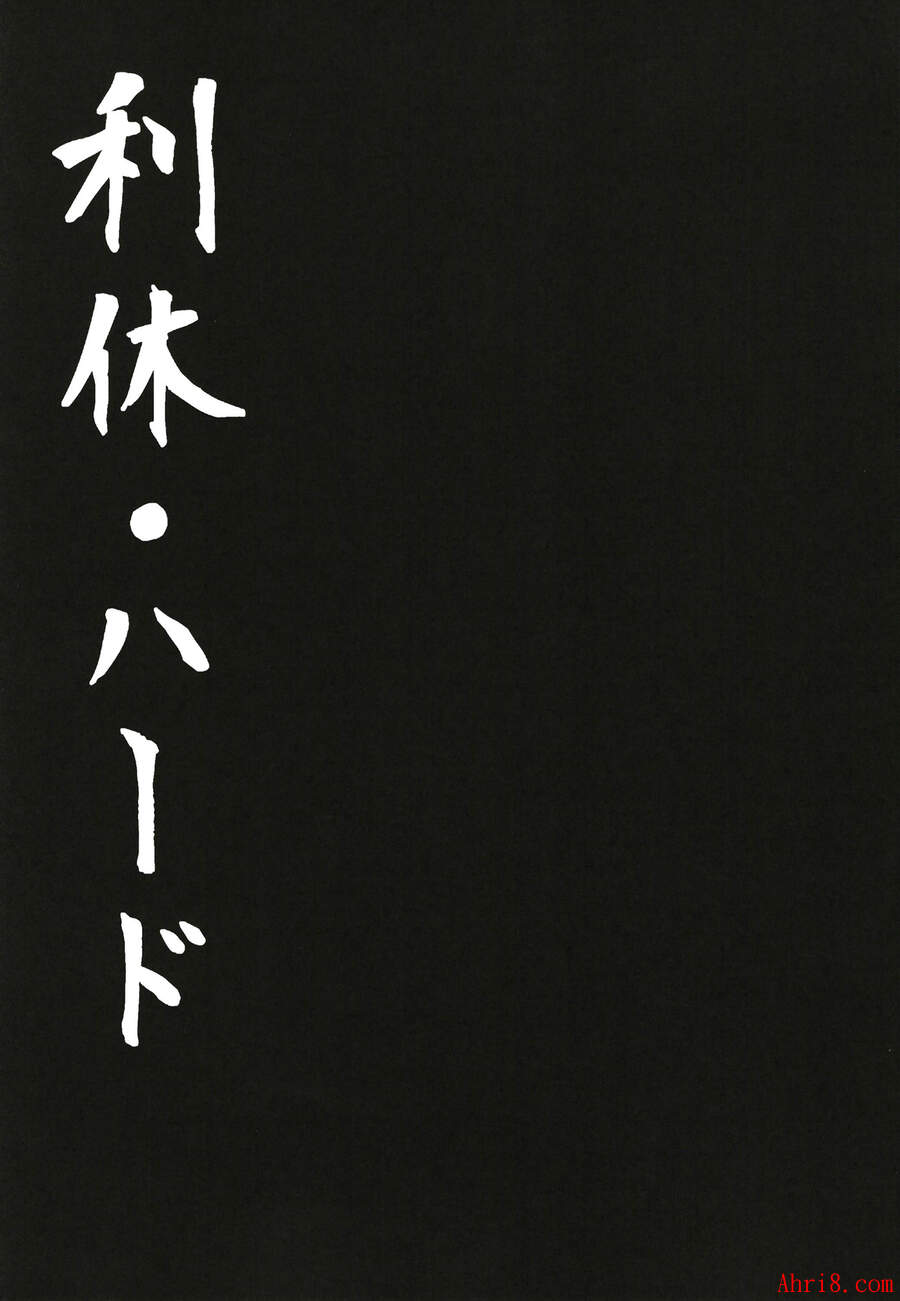 利休・ハード
Ahri8.com